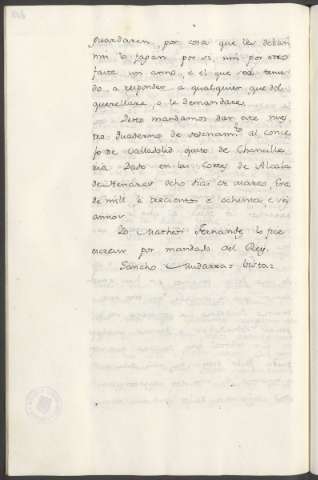 guardaren, por cosa que les deban
nin lo fagan por si, nin por otro
fasta un anno, e el que sea tenu-
do a responder a qualquier que del
querellare, o le demandare.
Desto mandamos dar este nues-
tro quaderno de ordenamto al conce-
jo de Valladolid que de Chancille-
ria Dado en las Cortes de Alcala
de Henares ocho dias de marzo, Era
de mill, e trecientos e ochenta e seis
annos.
Yo Matheos Fernandez lo fice
escrevir por mandado del Rey.
Sancho Mudarra= Vista=